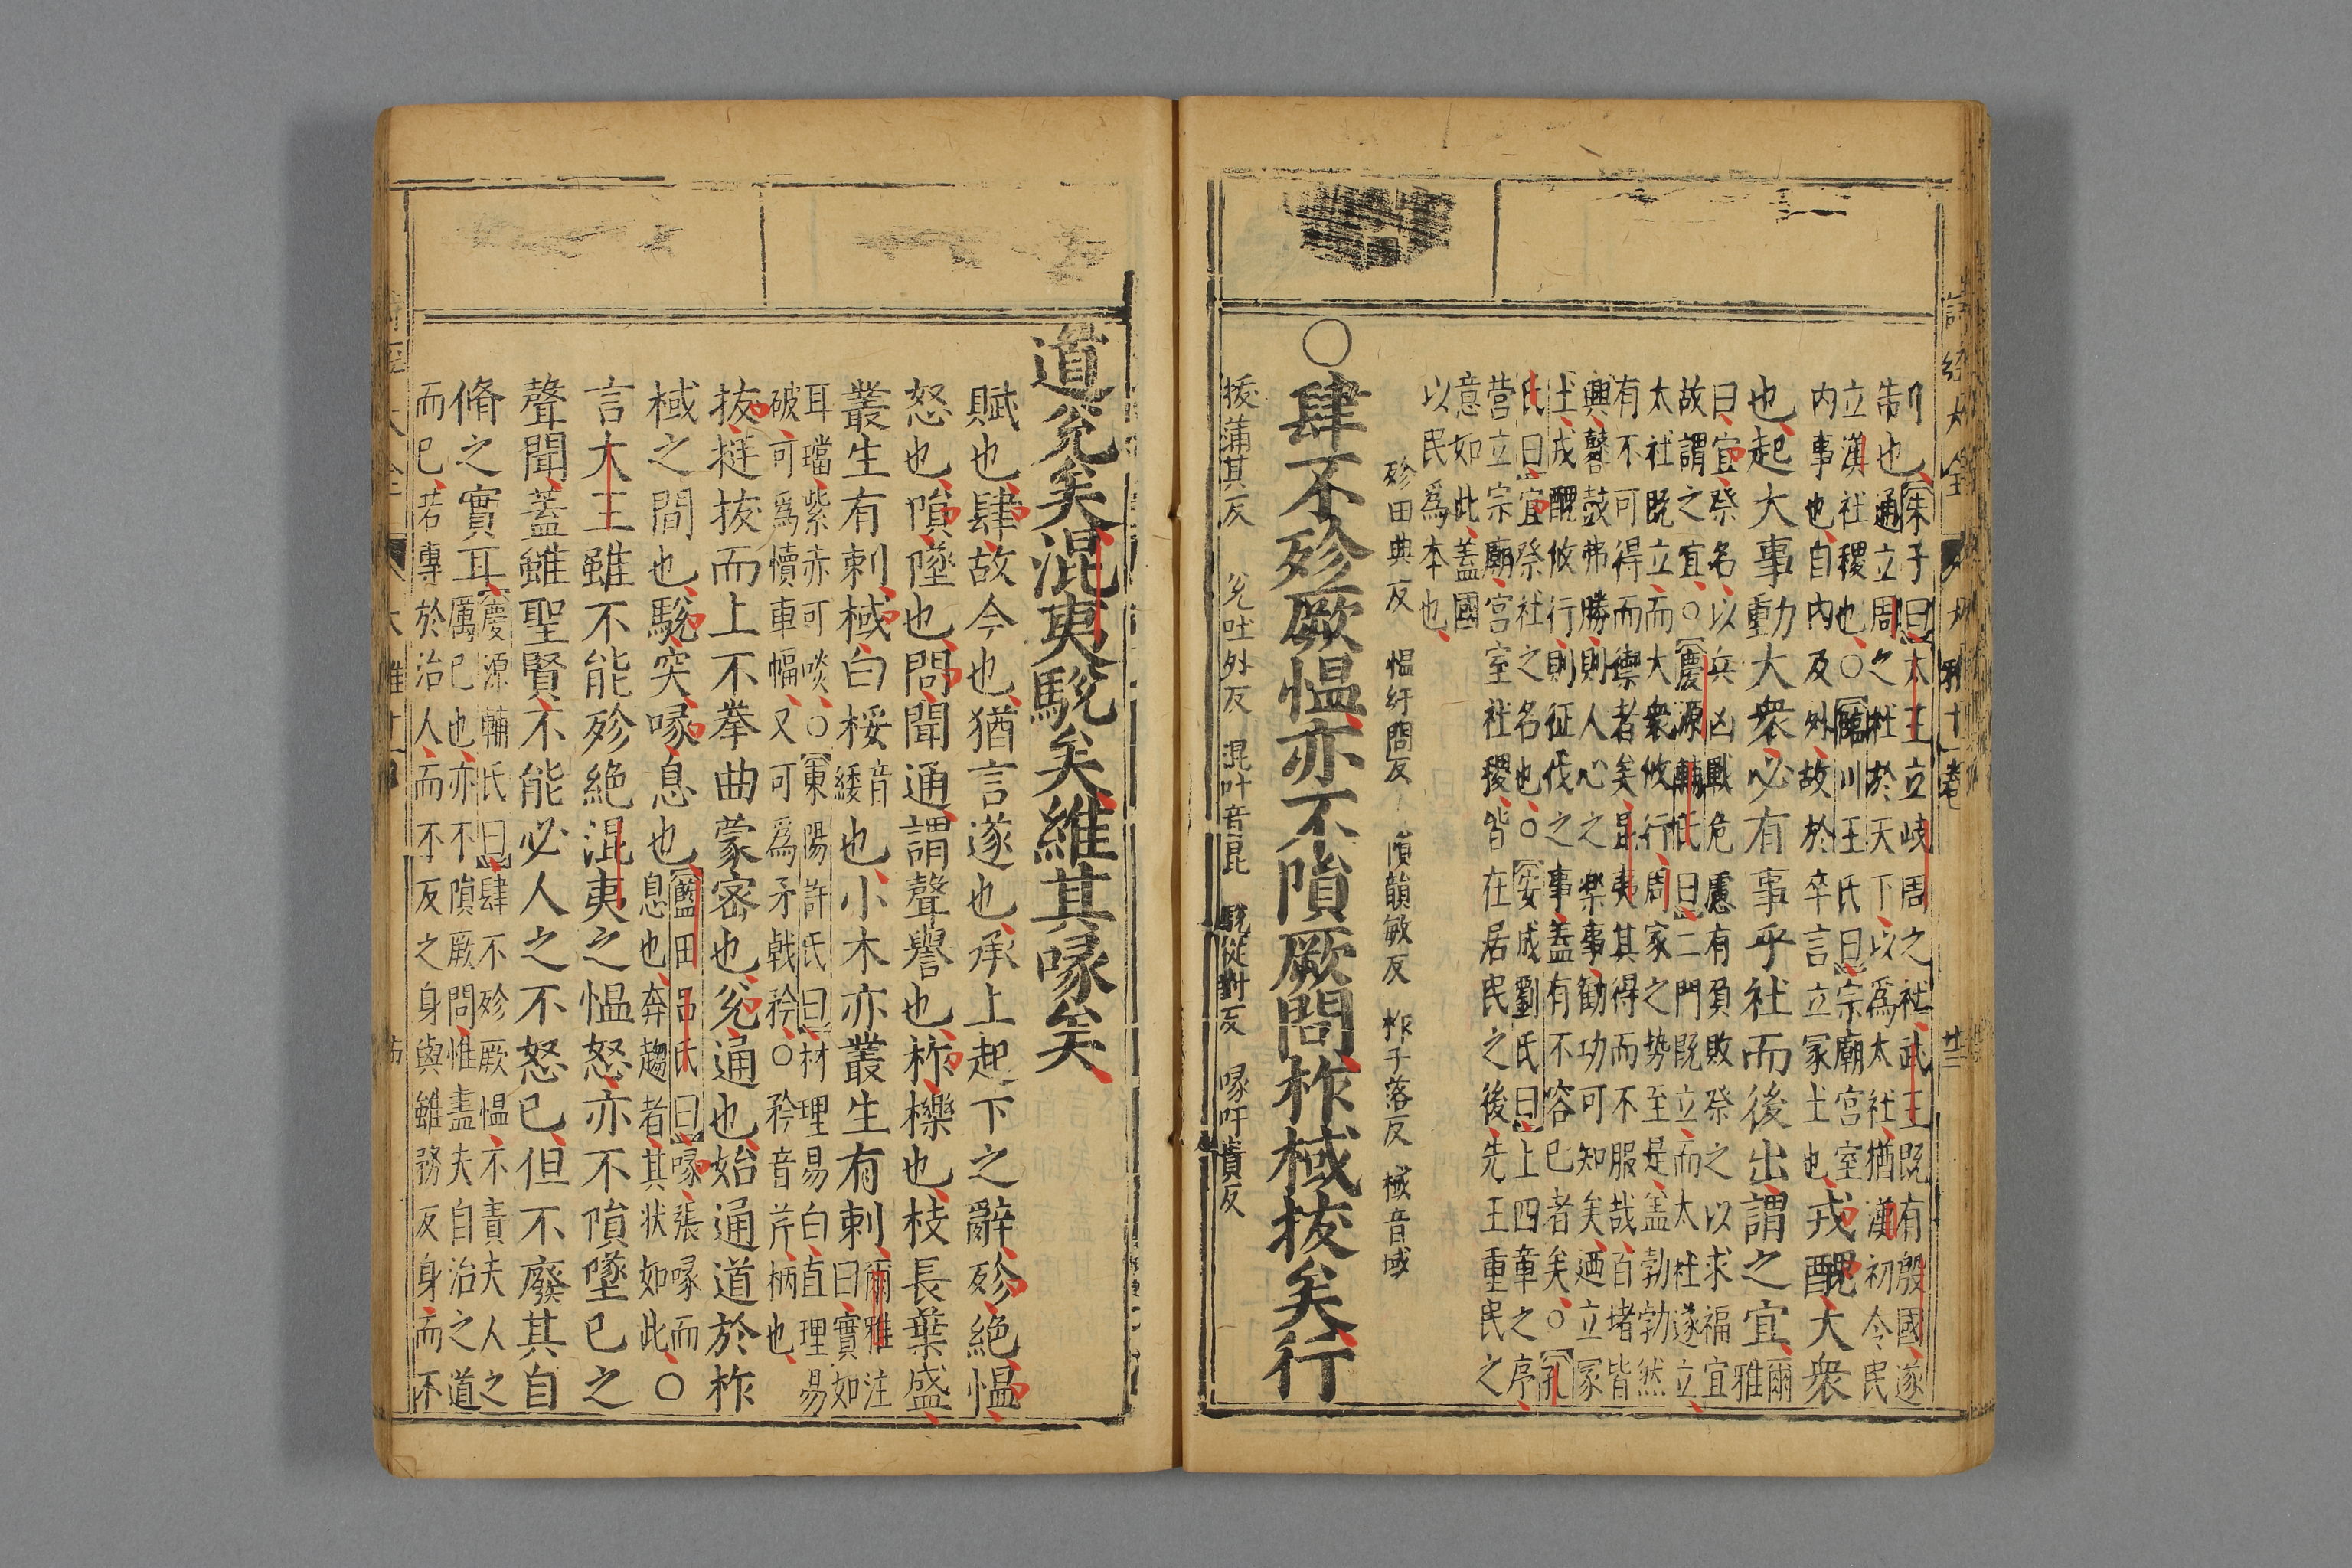 詩經大全
制也【朱子曰】太王立岐周之社武王既有殷國遂
通立周之社於天下以爲太社猶漢初令民
立漢社稷也○【臨川王氏曰】宗廟宮室
內事也自內及外故於卒言立冢土也戎醜大衆
也起大事動大衆必有事乎社而後出謂之宜爾雅
曰宜祭名以兵凶戰危慮有負敗祭之以求福宜
故謂之宜○【慶源輔氏曰】二門既立而太社遂立
太社既立而大衆攸行周家之勢至是蓋勃勃然
有不可得而禦者矣昆夷其得而不服哉百堵皆
興鼛鼓弗勝則人心之樂事勸功可知矣迺立冢
土戎醜攸行則征伐之事蓋有不容已者矣○【孔
氏曰】宜祭社之名也○【安成劉氏曰】上四章之序
營立宗廟宮室社稷皆在居民之後先王重民之
意如此蓋國
以民爲本也
殄田典反 慍紆問反 隕韻敏反 柞子落反 棫音域
○肆不殄厥慍亦不隕厥問柞棫拔矣行
拔蒲其反 兌吐外反 混叶音昆 駾徒對反 喙吁貴反
道兌矣混夷駾矣維其喙矣
賦也肆故今也猶言遂也承上起下之辭殄絶慍
怒也隕墜也問聞通謂聲譽也柞櫟也枝長葉盛
叢生有刺棫白桵音緌也小木亦叢生有刺爾雅注
曰實如
耳璫紫赤可啖○【東陽許氏曰】材理易白直理易
破可爲犢車幅又可爲矛戟矜○矜音芹柄也
拔挺拔而上不拳曲蒙密也兌通也始通道於柞
棫之間也駾突喙息也【藍田呂氏曰】喙張喙而
息也奔趨者其状如此○
言大王雖不能殄絶混夷之慍怒亦不隕墜己之
聲聞蓋雖聖賢不能必人之不怒己但不廢其自
脩之實耳【慶源輔氏曰】肆不殄厥慍不責夫人之
厲己也亦不隕厥問惟盡夫自治之道
而已若專於治人而不反之身與雖務反身而不